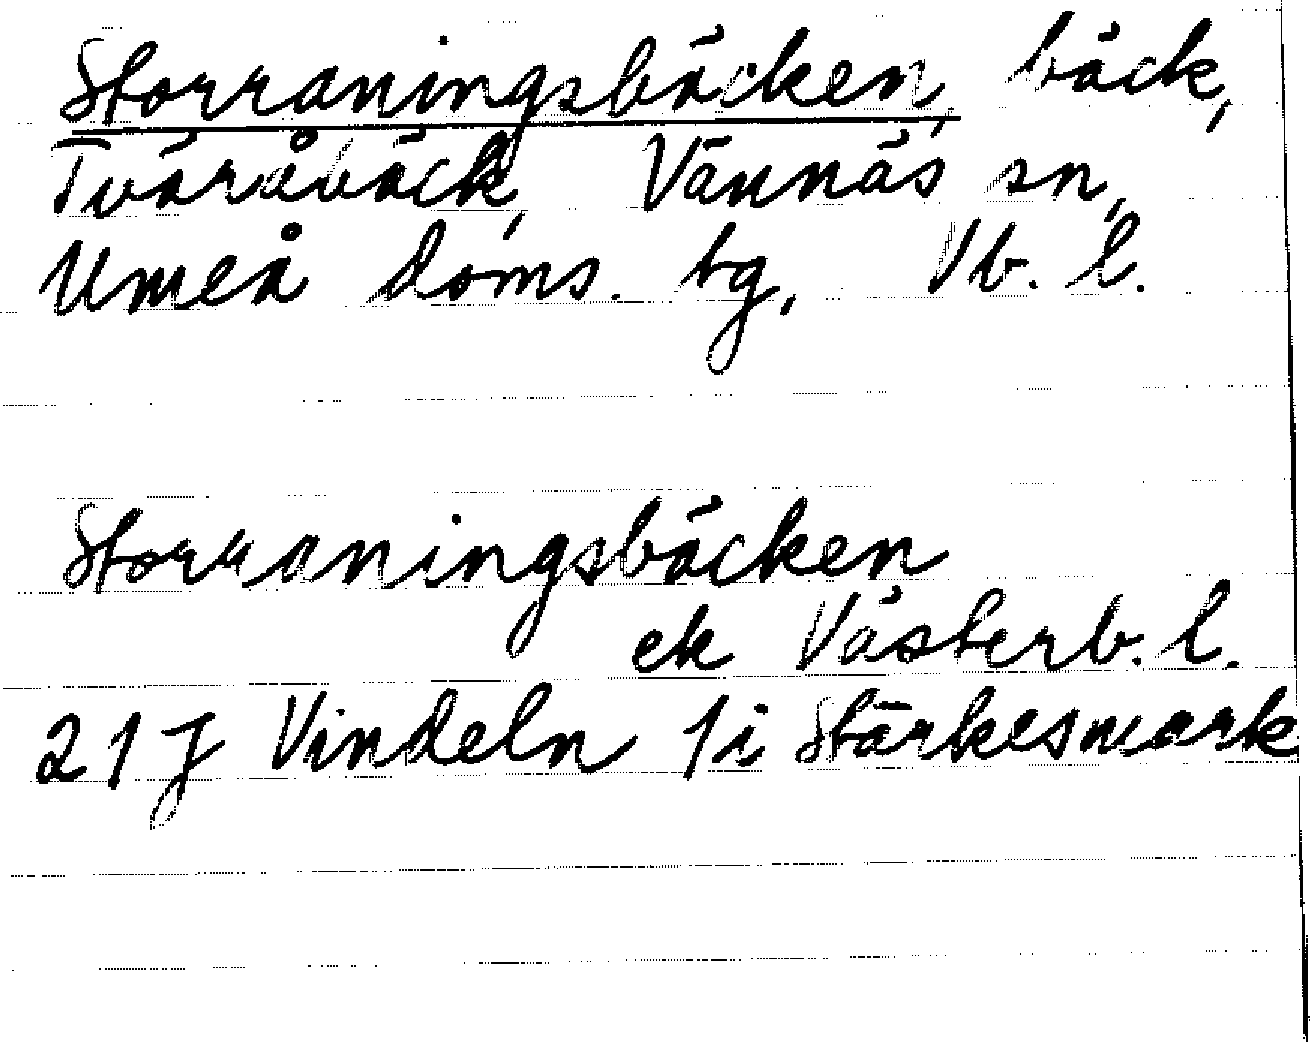 Storraningsbäcken, bäck,
Tväråbäck, Vännäs sn,
Umeå doms. tg, Vb. l.
Storraningsbäcken
ek Västerb. l.
21 J Vindeln 1i Stärkesmark